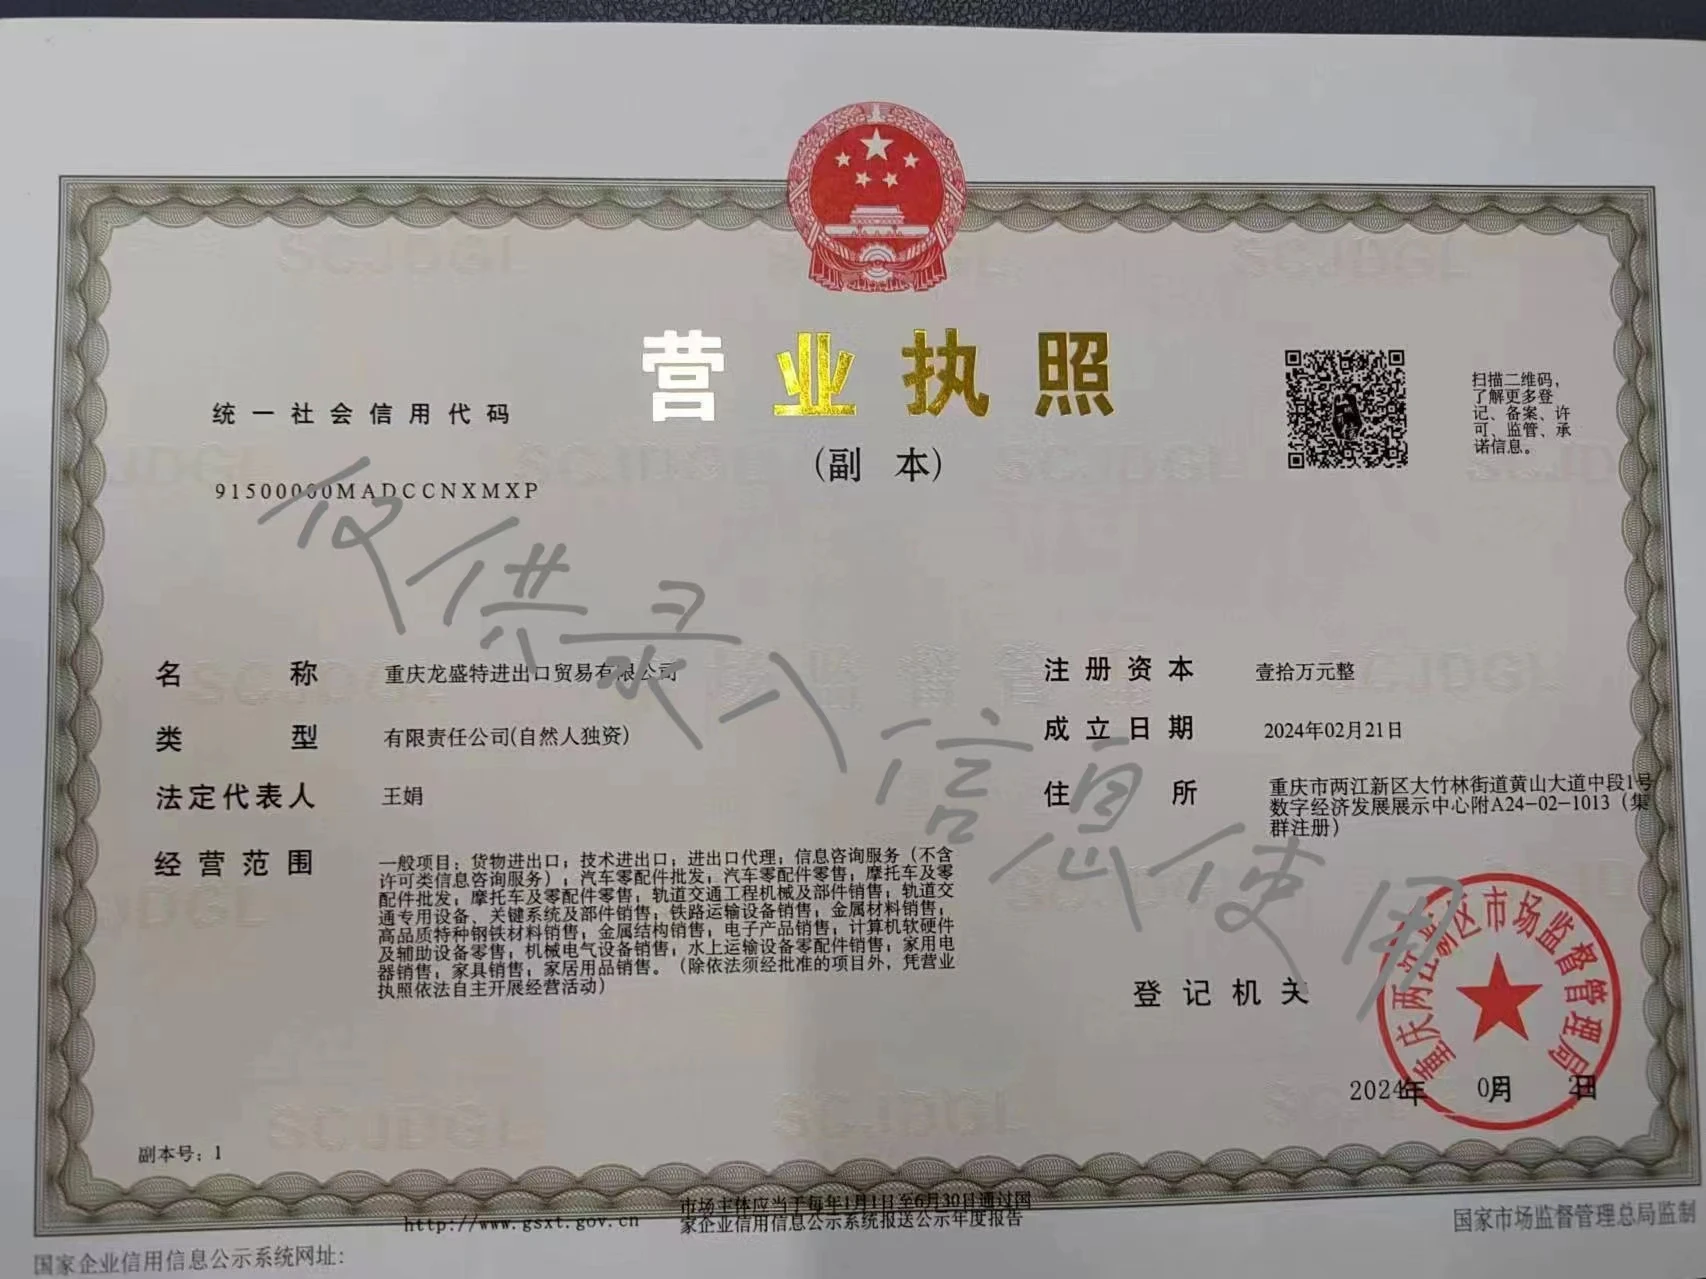 营业执照
(副 本)
扫描二维码，
了解更多登
记、备案、许
可、监管、承
诺信息。
统一社会信用代码
91500000MADCCNXMXP
仅供录入信息使用
名称 重庆龙盛特进出口贸易有限公司
类型 有限责任公司(自然人独资)
法定代表人 王娟
经营范围 一般项目：货物进出口；技术进出口；进出口代理；信息咨询服务（不含
许可类信息咨询服务）；汽车零配件批发；汽车零配件零售；摩托车及零
配件批发；摩托车及零配件零售；轨道交通工程机械及部件销售；轨道交
通专用设备、关键系统及部件销售；铁路运输设备销售；金属材料销售；
高品质特种钢铁材料销售；金属结构销售；电子产品销售；计算机软硬件
及辅助设备零售；机械电气设备销售；水上运输设备零配件销售；家用电
器销售；家具销售；家居用品销售。（除依法须经批准的项目外，凭营业
执照依法自主开展经营活动）
注册资本 壹拾万元整
成立日期 2024年02月21日
住所 重庆市两江新区大竹林街道黄山大道中段1号
数字经济发展展示中心附A24-02-1013（集
群注册）
登记机关
重庆两江新区市场监督管理局
2024年 02月 21日
副本号：1
国家企业信用信息公示系统网址：
http://www.gsxt.gov.cn
市场主体应当于每年1月1日至6月30日通过国
家企业信用信息公示系统报送公示年度报告
国家市场监督管理总局监制